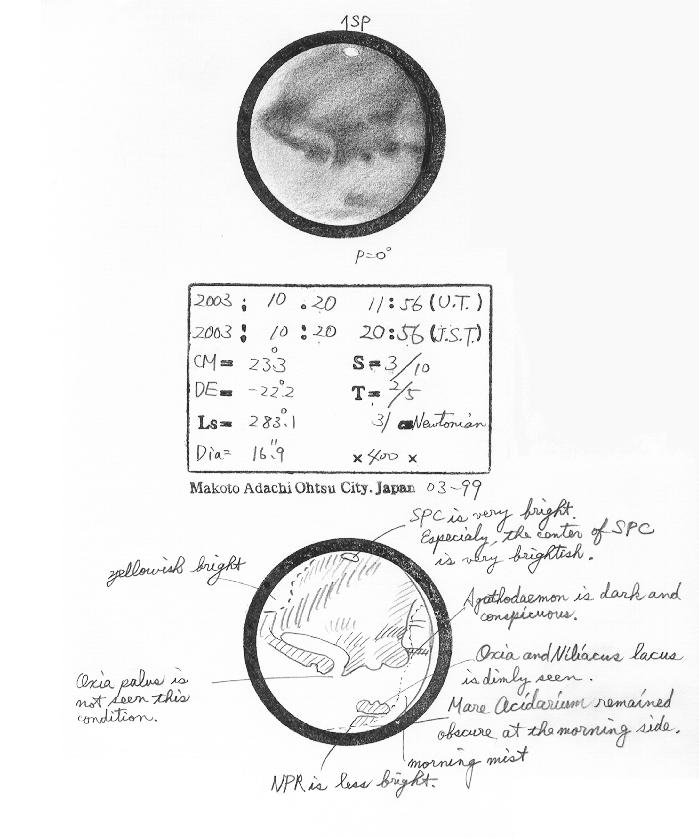 ↑SP
P=0°
2003 : 10 . 20 11:56 (U.T.)
2003 : 10 : 20 20:56 (J.S.T.)
CM= 23°.3 S= 3/10
DE= -22°.2 T= 2/5
Ls= 283°.1 31 Newtonian
Dia= 16".9 × 400 ×
Makoto Adachi Ohtsu City. Japan 03-99
SPC is very bright.
Especialy, the center of SPC
is very brightish.
yellowish bright
Agathodaemon is dark and
conspicuous.
Oxia and Niliacus lacus
is dimly seen.
Oxia palus is
not seen this
condition.
Mare Acidarium remained
obscure at the morning side.
morning mist
NPR is less bright.